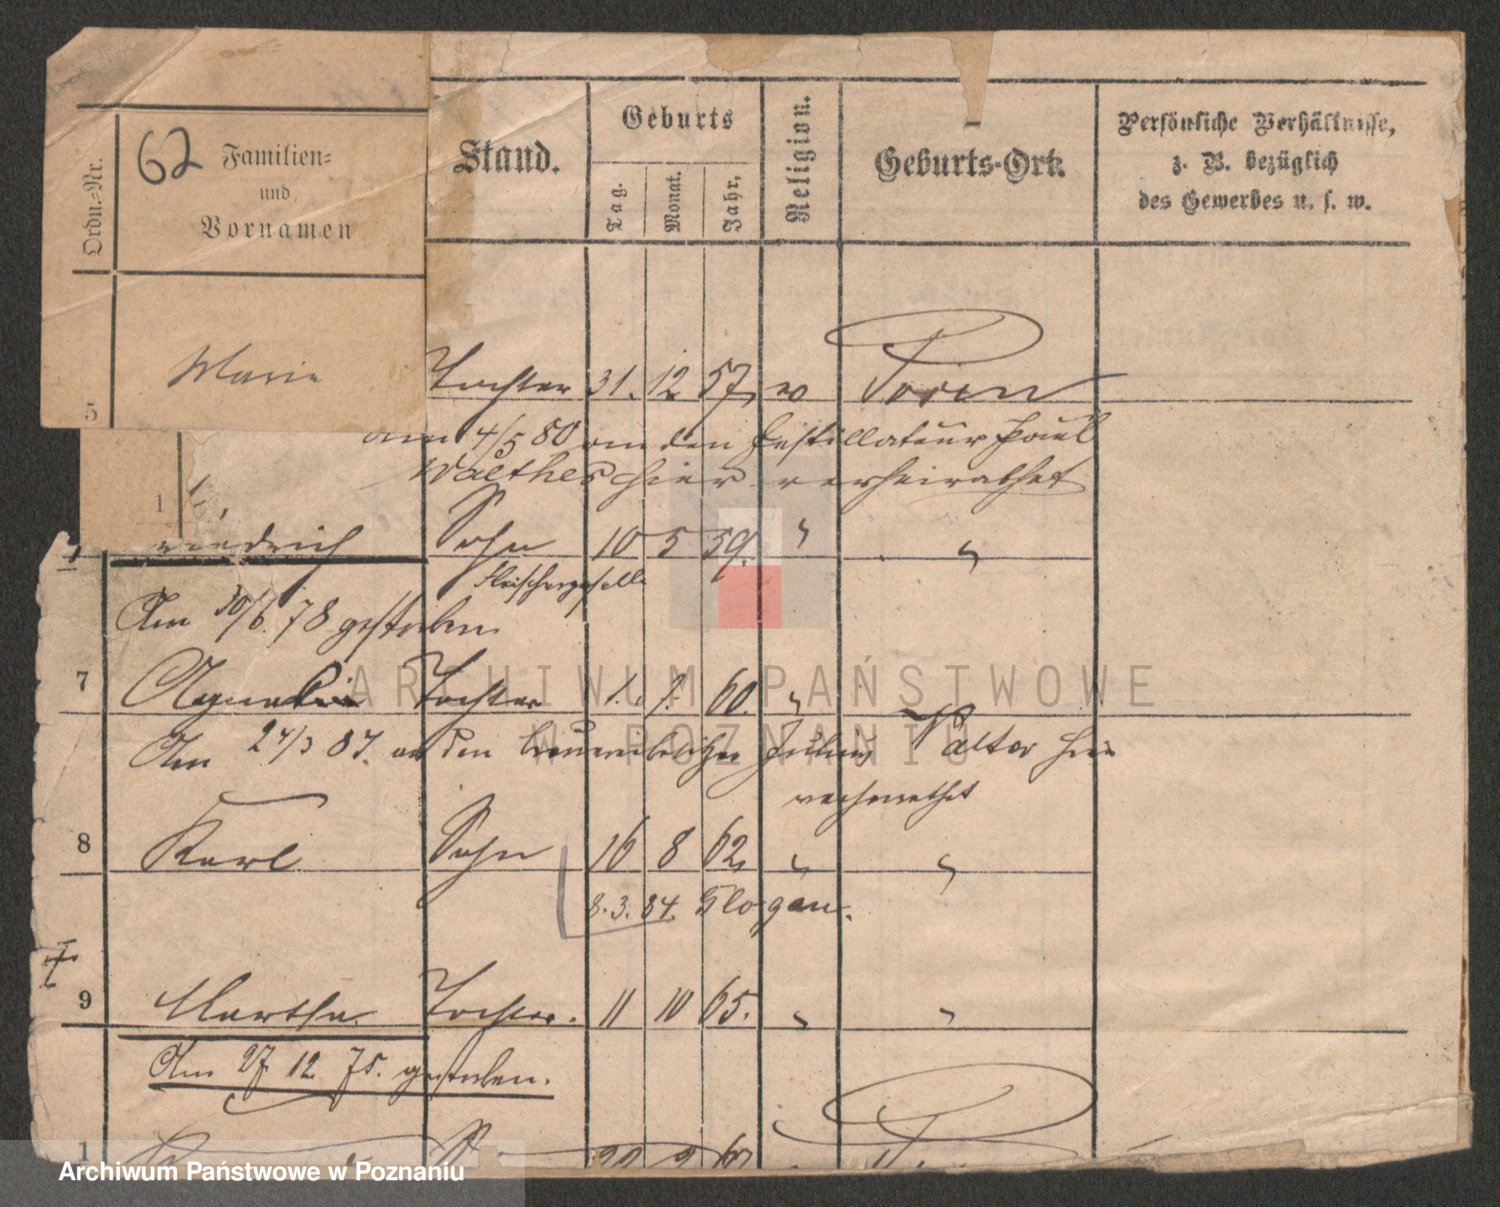 Ordn.-Nr.
62 Familien-
und
Vornamen
Stand.
Geburts
Tag.
Monat.
Jahr.
Religion.
Geburts-Ort.
Persönliche Verhältnisse,
z. B. bezüglich
des Gewerbes u. s. w.
5 Marie Tochter 31. 12 57 Posen
am 4/5 80 an den Destillateur Paul
Walther hier verheirathet
1
riedrich Sohn 10 5 59. " "
Fleischergeselle
Am 30/6. 78 gestorben
7 Tochter 1. 1. 60. "
Am 24/3 87. an den Julius Valter hier
verheirathet
8 Karl Sohn 16 8 62 " "
8. 3. 84. Glogau.
9 Martha Tochter. 11 10 65. " "
Am 27 12 75. gestorben.
1
ARCHIWUM PAŃSTWOWE
W POZNANIU
Archiwum Państwowe w Poznaniu